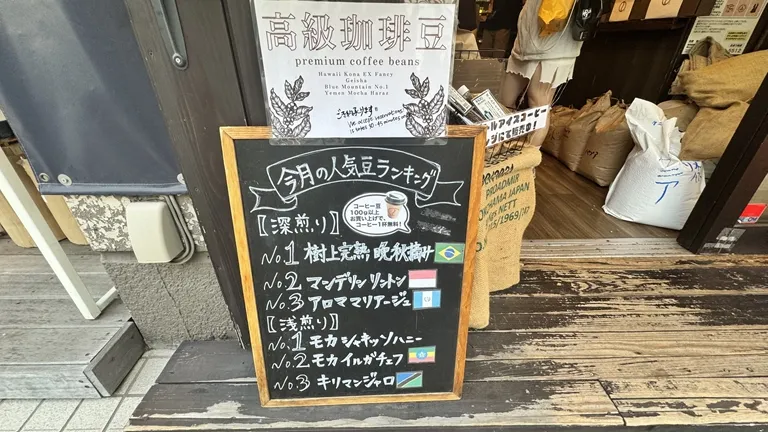 高級珈琲豆
premium coffee beans
Hawaii Kona EX Fancy
Geisha
Blue Mountain No.1
Yemen Mocha Haraz
ございます!!
今月の人気豆ランキング
コーヒー豆
100g以上
お買い上げで、
コーヒー1杯無料！
【深煎り】
No.1 樹上完熟 晩秋摘み
No.2 マンデリン リントン
No.3 アロママリアージュ
【浅煎り】
No.1 モカ シャキッソハニー
No.2 モカ イルガチェフ
No.3 キリマンジャロ
ルアイスコーヒー
にて販売中！
PROADMIR
JAPAN
NETT
ア